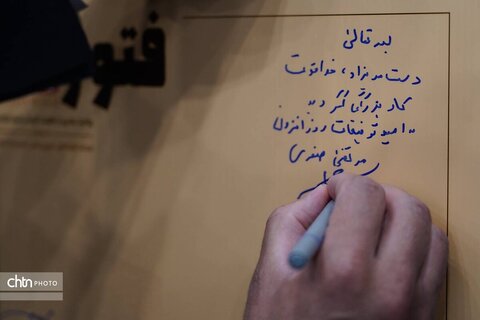 بسمه تعالی
دست مریزاد، خداقوت
کار بزرگی کردید
به امید توفیقات روزافزون
مرتضی صفری
فتور
chtn PHOTO